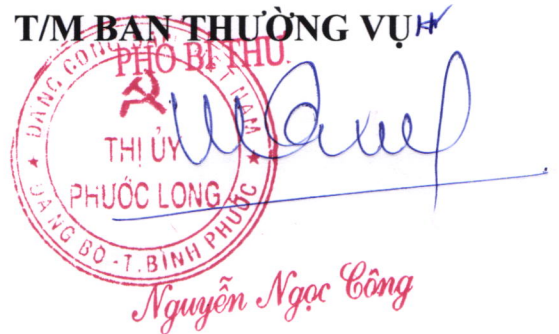 T/M BAN THƯỜNG VỤ
PHÓ BÍ THƯ
ĐẢNG CỘNG SẢN VIỆT NAM
THỊ ỦY
PHƯỚC LONG
ĐẢNG BỘ - T. BÌNH PHƯỚC
Nguyễn Ngọc Công